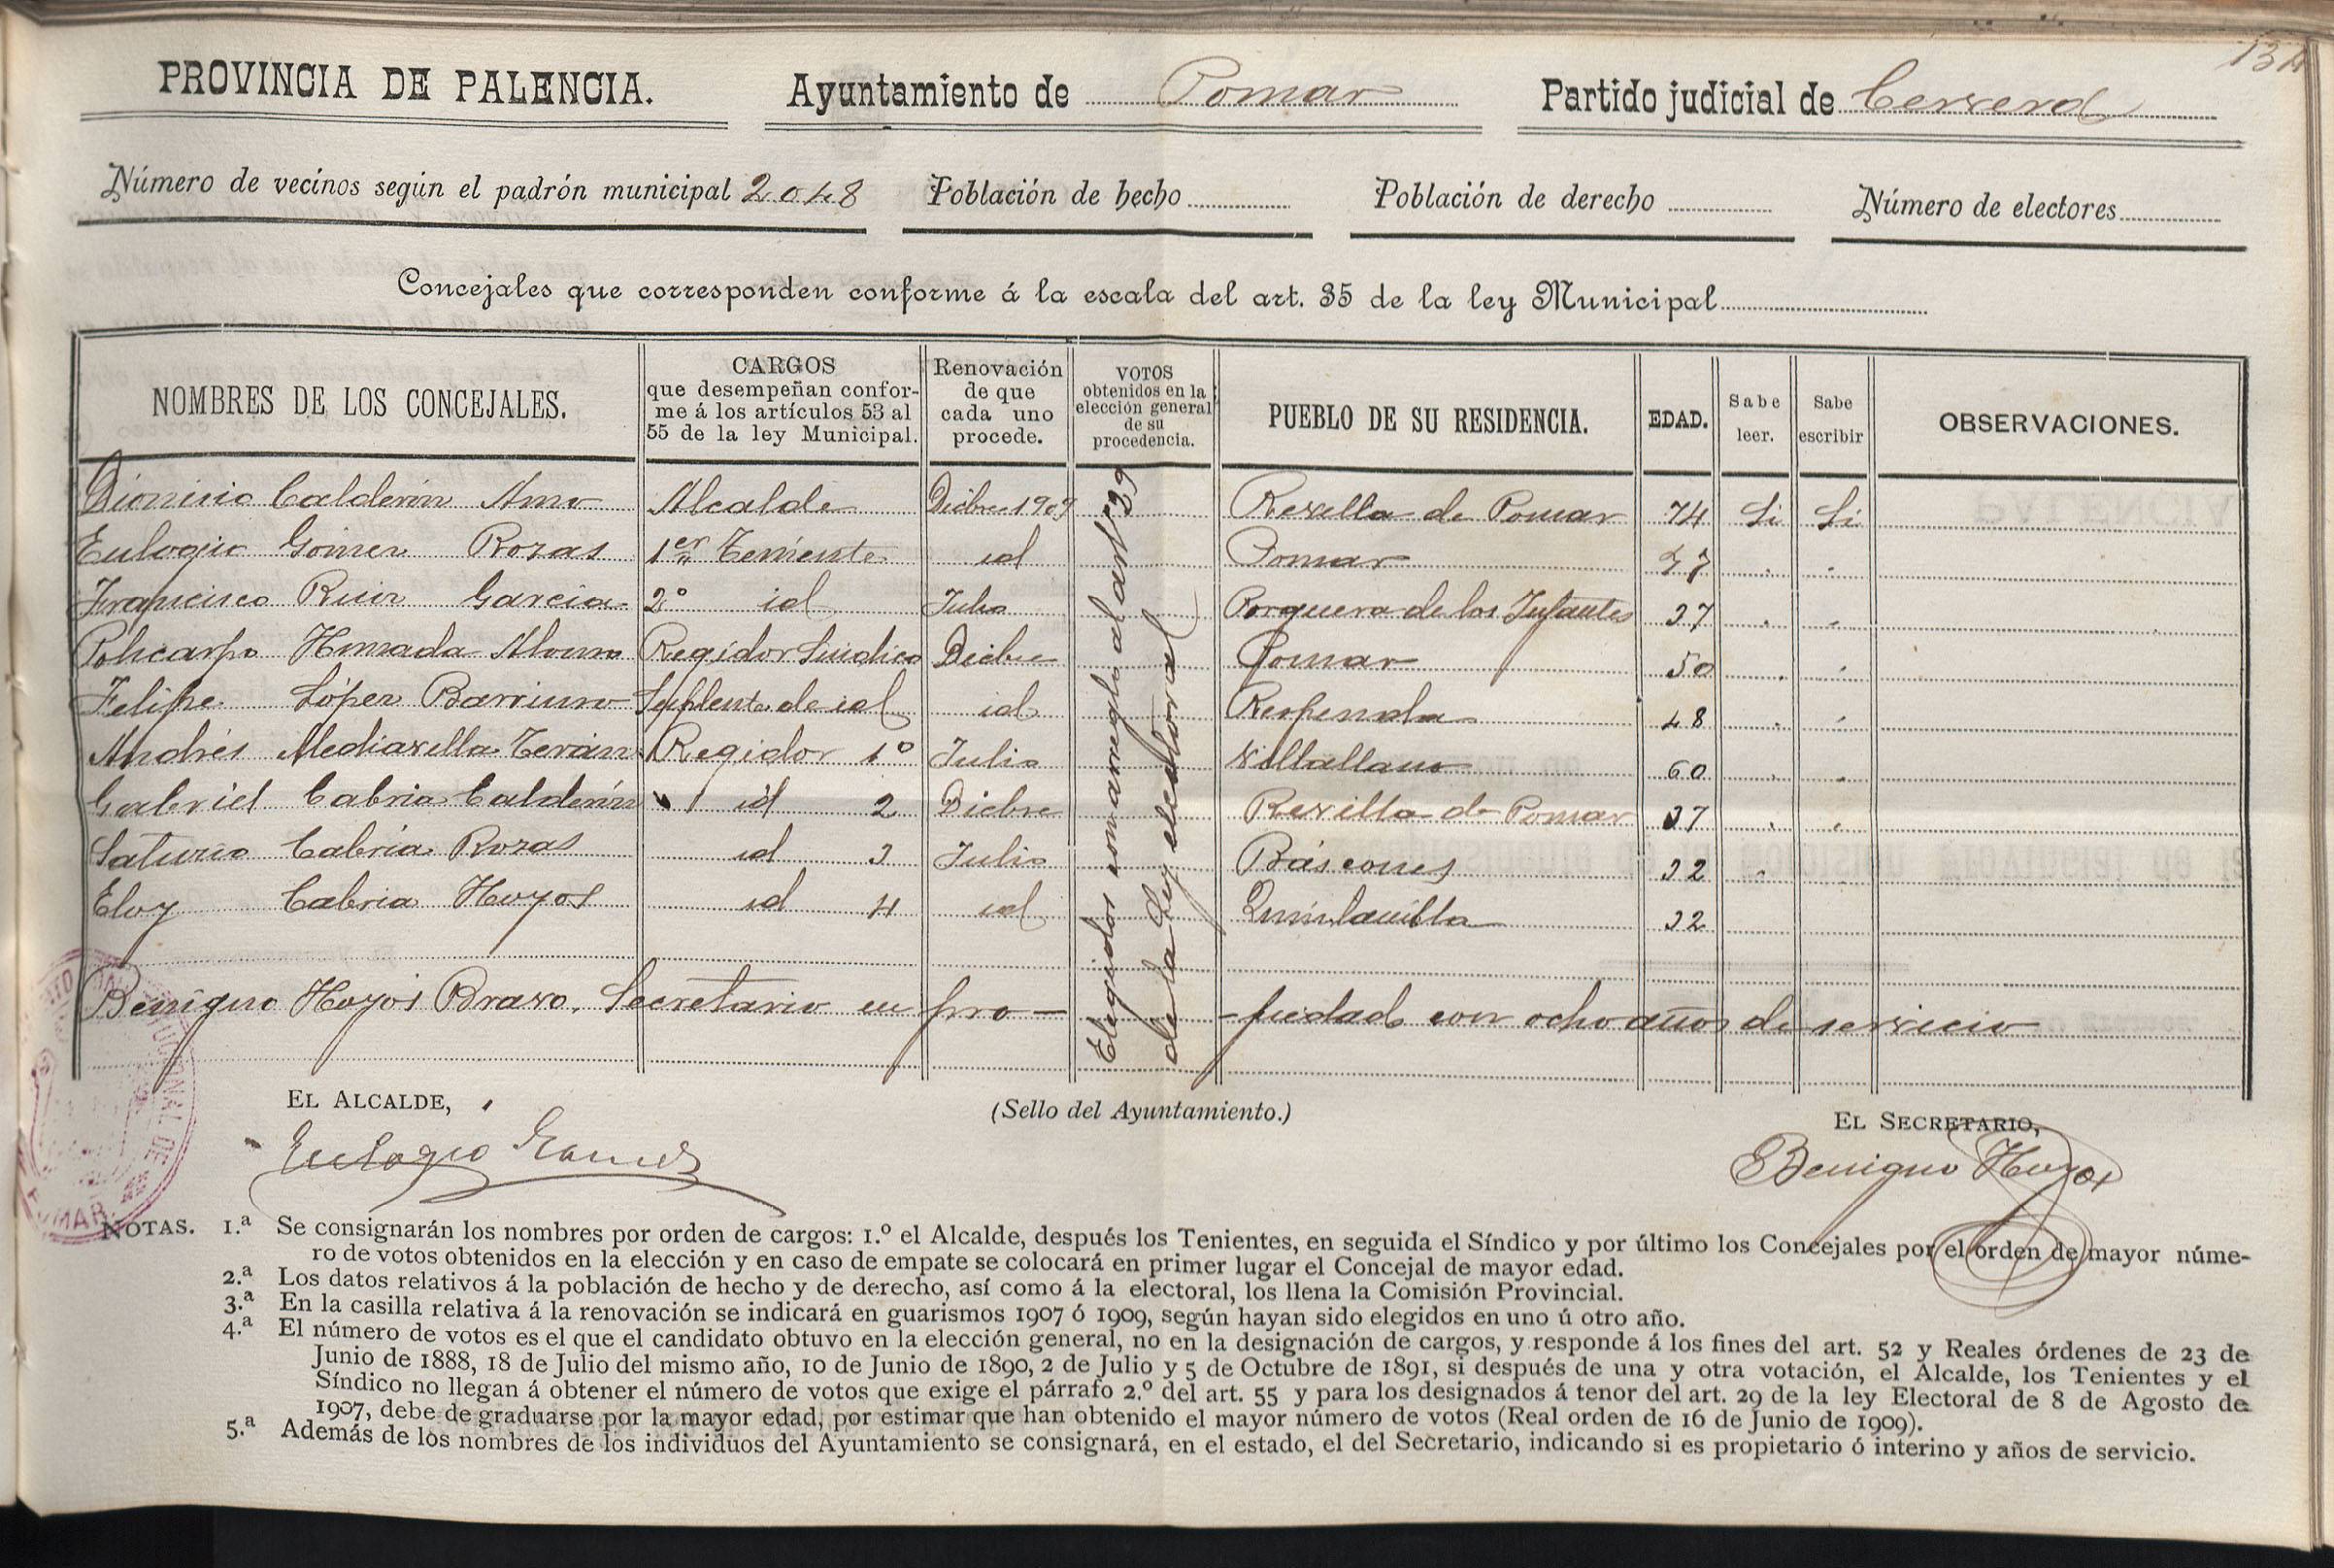 134
PROVINCIA DE PALENCIA. Ayuntamiento de Pomar Partido judicial de Cervera
Número de vecinos según el padrón municipal 2048 Población de hecho Población de derecho Número de electores
Concejales que corresponden conforme á la escala del art. 35 de la ley Municipal
NOMBRES DE LOS CONCEJALES.
CARGOS
que desempeñan confor-
me á los artículos 53 al
55 de la ley Municipal.
Renovación
de que
cada uno
procede.
VOTOS
obtenidos en la
elección general
de su
procedencia.
PUEBLO DE SU RESIDENCIA.
EDAD.
Sabe
leer.
Sabe
escribir
OBSERVACIONES.
Dionisio Calderón Amo Alcalde Dicbre 1909 Revilla de Pomar 74 Si Si
Eulogio Gómez Rozas 1er Teniente id Pomar 57 " "
Francisco Ruiz Garcia 2º id Julio Porquera de los Infantes 37 " "
Policarpo Hmada Alonso Regidor Sindico Dicbre Pomar 50 " "
Felipe López Barriuso Suplente de id id Respenda 48 " "
Andrés Mediavilla Terán Regidor 1º Julio Villallano 60 " "
Gabriel Cabria Calderón id 2 Dicbre Revilla de Pomar 37 " "
Saturio Cabria Rozas id 3 Julio Báscones 32 "
Eloy Cabria Hoyos id 4 id Quintanilla 32
Elegidos con arreglo al artº 29
de la Ley electoral
Benigno Hoyos Bravo. Secretario en pro- -piedad con ocho años de servicio
EL ALCALDE,
(Sello del Ayuntamiento.)
EL SECRETARIO,
Eulogio Gomez
Benigno Hoyos
NOTAS. 1.ª Se consignarán los nombres por orden de cargos: 1.º el Alcalde, después los Tenientes, en seguida el Síndico y por último los Concejales por el orden de mayor núme-
ro de votos obtenidos en la elección y en caso de empate se colocará en primer lugar el Concejal de mayor edad.
2.ª Los datos relativos á la población de hecho y de derecho, así como á la electoral, los llena la Comisión Provincial.
3.ª En la casilla relativa á la renovación se indicará en guarismos 1907 ó 1909, según hayan sido elegidos en uno ú otro año.
4.ª El número de votos es el que el candidato obtuvo en la elección general, no en la designación de cargos, y responde á los fines del art. 52 y Reales órdenes de 23 de
Junio de 1888, 18 de Julio del mismo año, 10 de Junio de 1890, 2 de Julio y 5 de Octubre de 1891, si después de una y otra votación, el Alcalde, los Tenientes y el
Síndico no llegan á obtener el número de votos que exige el párrafo 2.º del art. 55 y para los designados á tenor del art. 29 de la ley Electoral de 8 de Agosto de
1907, debe de graduarse por la mayor edad, por estimar que han obtenido el mayor número de votos (Real orden de 16 de Junio de 1909).
5.ª Además de los nombres de los individuos del Ayuntamiento se consignará, en el estado, el del Secretario, indicando si es propietario ó interino y años de servicio.